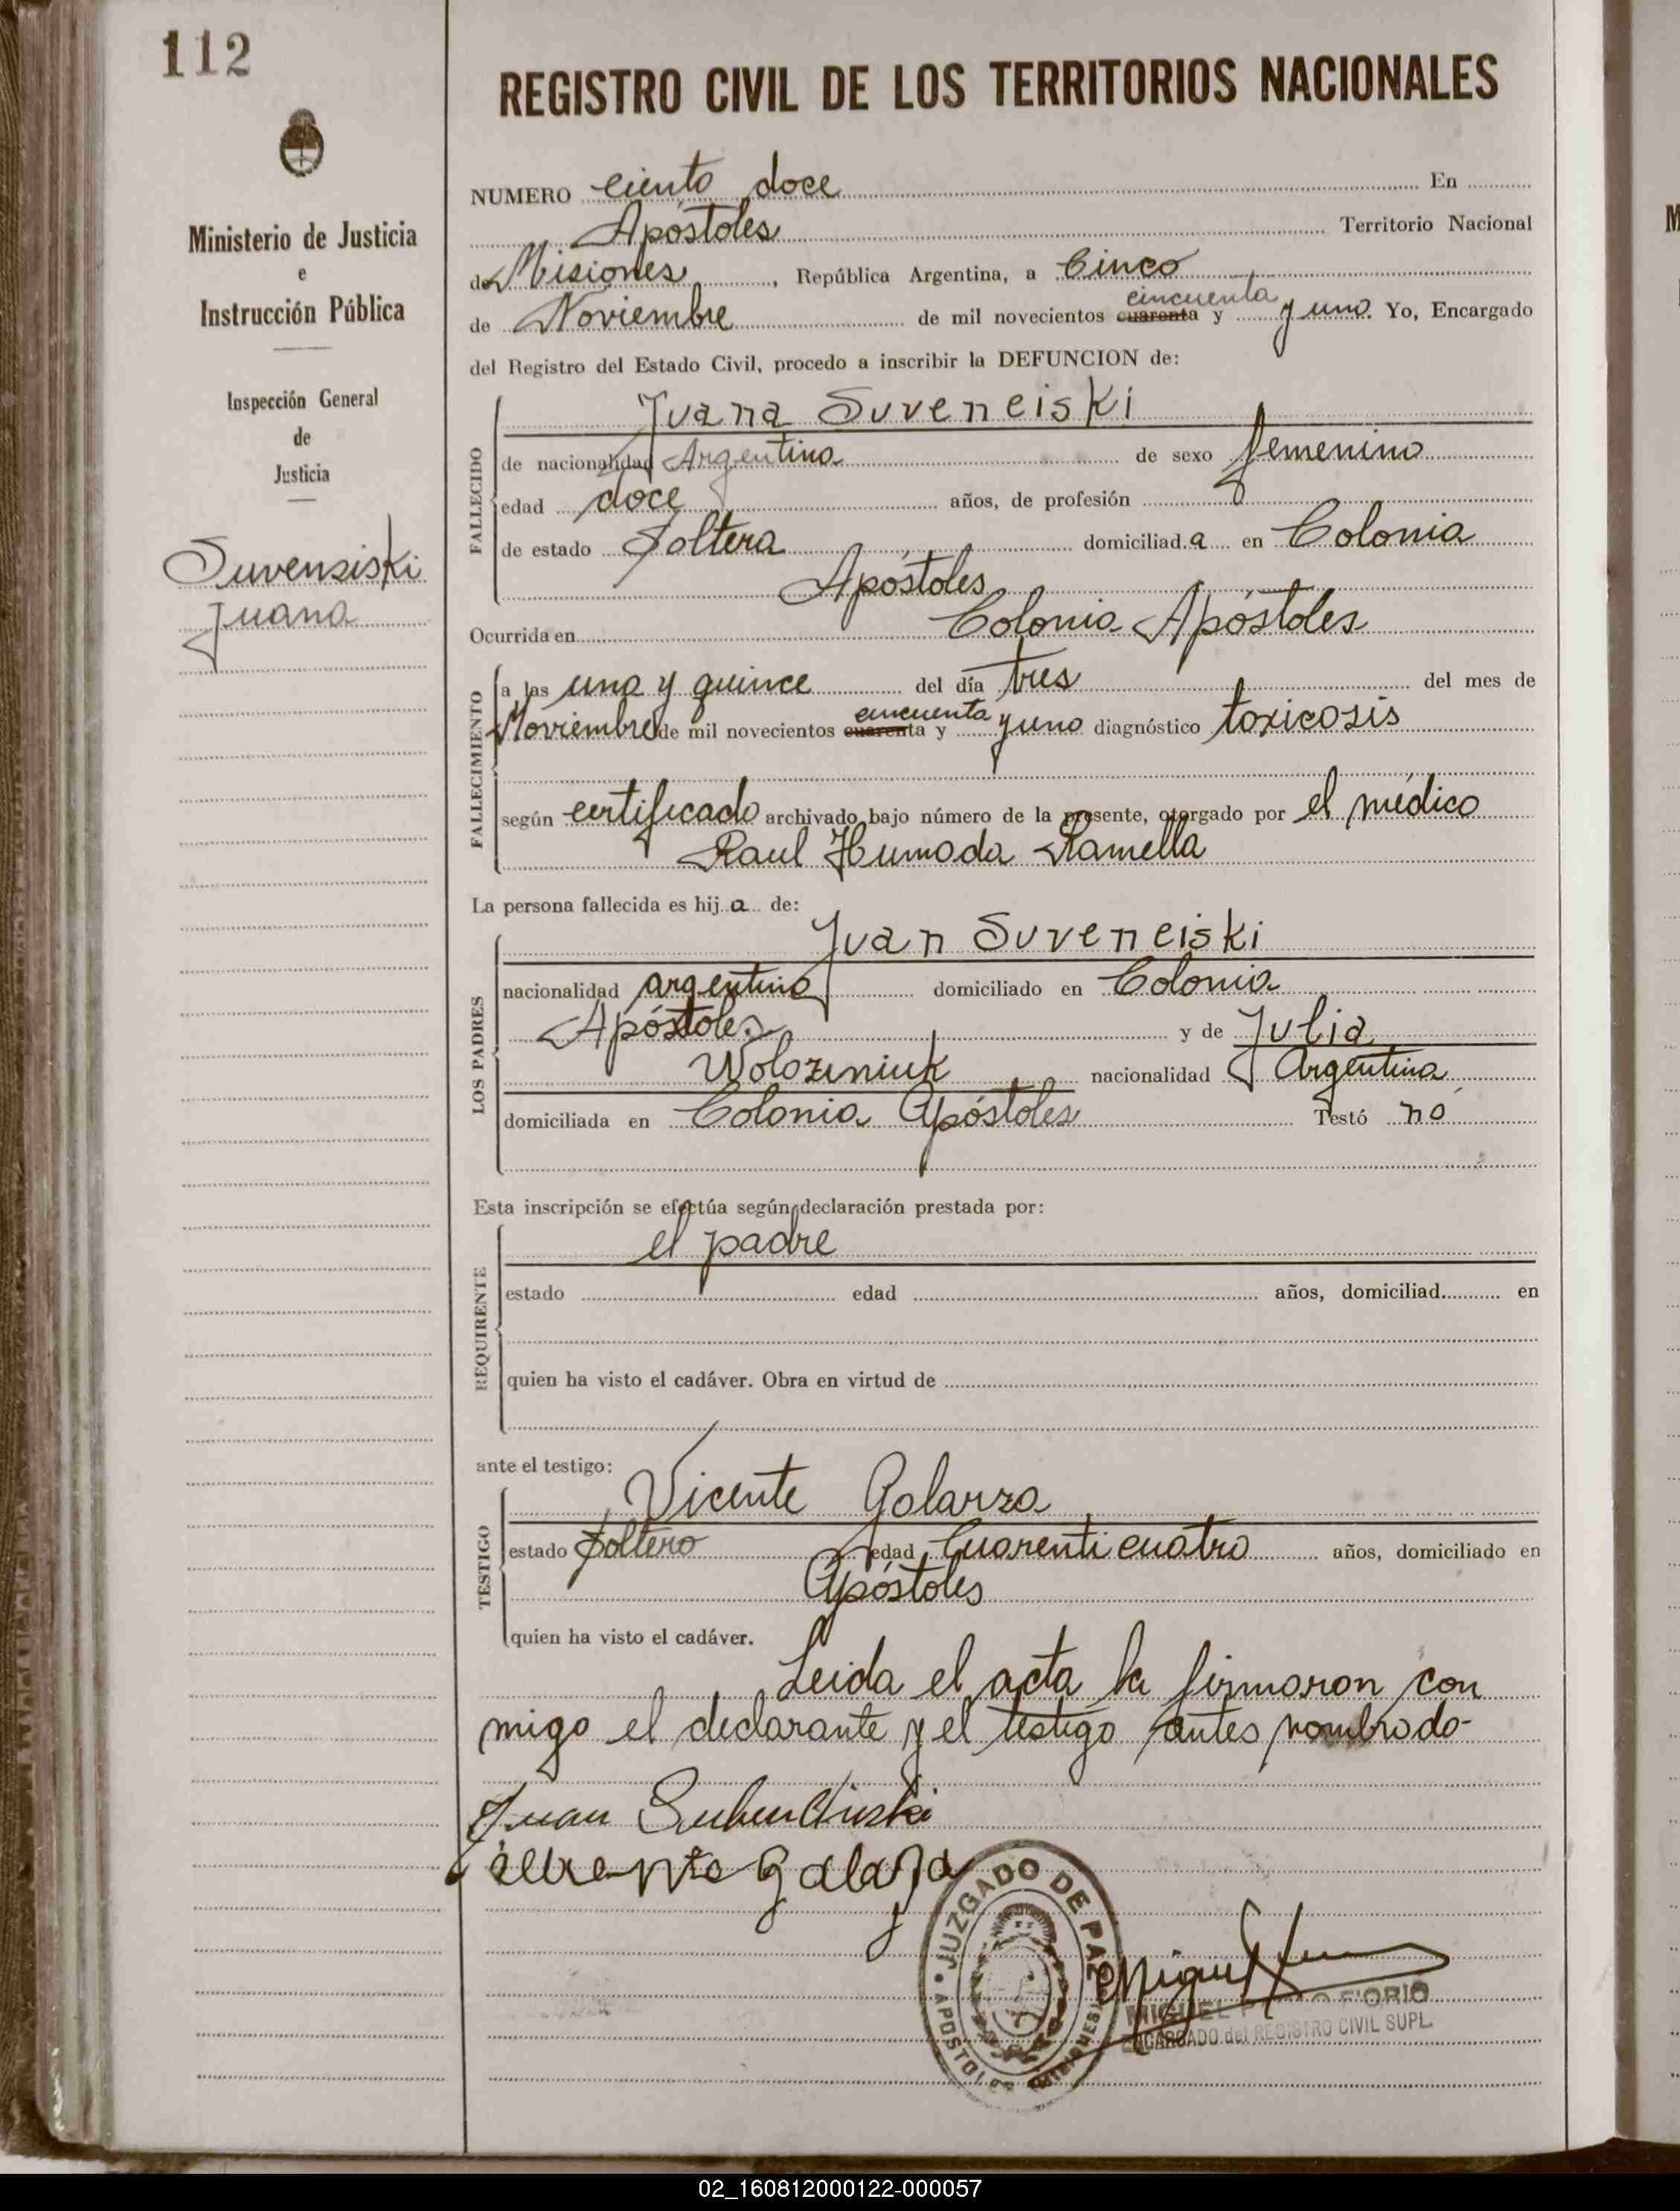 112
Ministerio de Justicia
e
Instrucción Pública
Inspección General
de
Justicia
Suvensiski
Juana
REGISTRO CIVIL DE LOS TERRITORIOS NACIONALES
NUMERO ciento doce En
Apóstoles Territorio Nacional
de Misiones, República Argentina, a Cinco
cincuenta
de Noviembre de mil novecientos cuarenta y y uno. Yo, Encargado
del Registro del Estado Civil, procedo a inscribir la DEFUNCION de:
FALLECIDO
Juana Suveneiski
de nacionalidad Argentina de sexo femenino
edad doce años, de profesión
de estado Soltera domiciliad.a en Colonia
Apóstoles
Ocurrida en Colonia Apóstoles
FALLECIMIENTO
a las una y quince del día tres del mes de
cincuenta
Noviembre de mil novecientos cuarenta y y uno diagnóstico toxicosis
según certificado archivado bajo número de la presente, otorgado por el médico
Raul Humada Ramella
La persona fallecida es hij a de:
LOS PADRES
Juan Suveneiski
nacionalidad argentino domiciliado en Colonia
Apóstoles y de Julia
Wolozeniuk nacionalidad Argentina
domiciliada en Colonia Apóstoles Testó no
Esta inscripción se efectúa según declaración prestada por:
REQUIRENTE
el padre
estado edad años, domiciliad en
quien ha visto el cadáver. Obra en virtud de
ante el testigo:
TESTIGO
Vicente Galarza
estado Soltero edad Cuarenticuatro años, domiciliado en
Apóstoles
quien ha visto el cadáver.
Leida el acta la firmaron con
migo el declarante y el testigo antes nombrado-
Juan
Galarza
JUZGADO DE PAZ
APOSTOLES MISIONES
Miguel
MIGUEL F'ORIO
ENCARGADO del REGISTRO CIVIL SUPL.
02_160812000122-000057